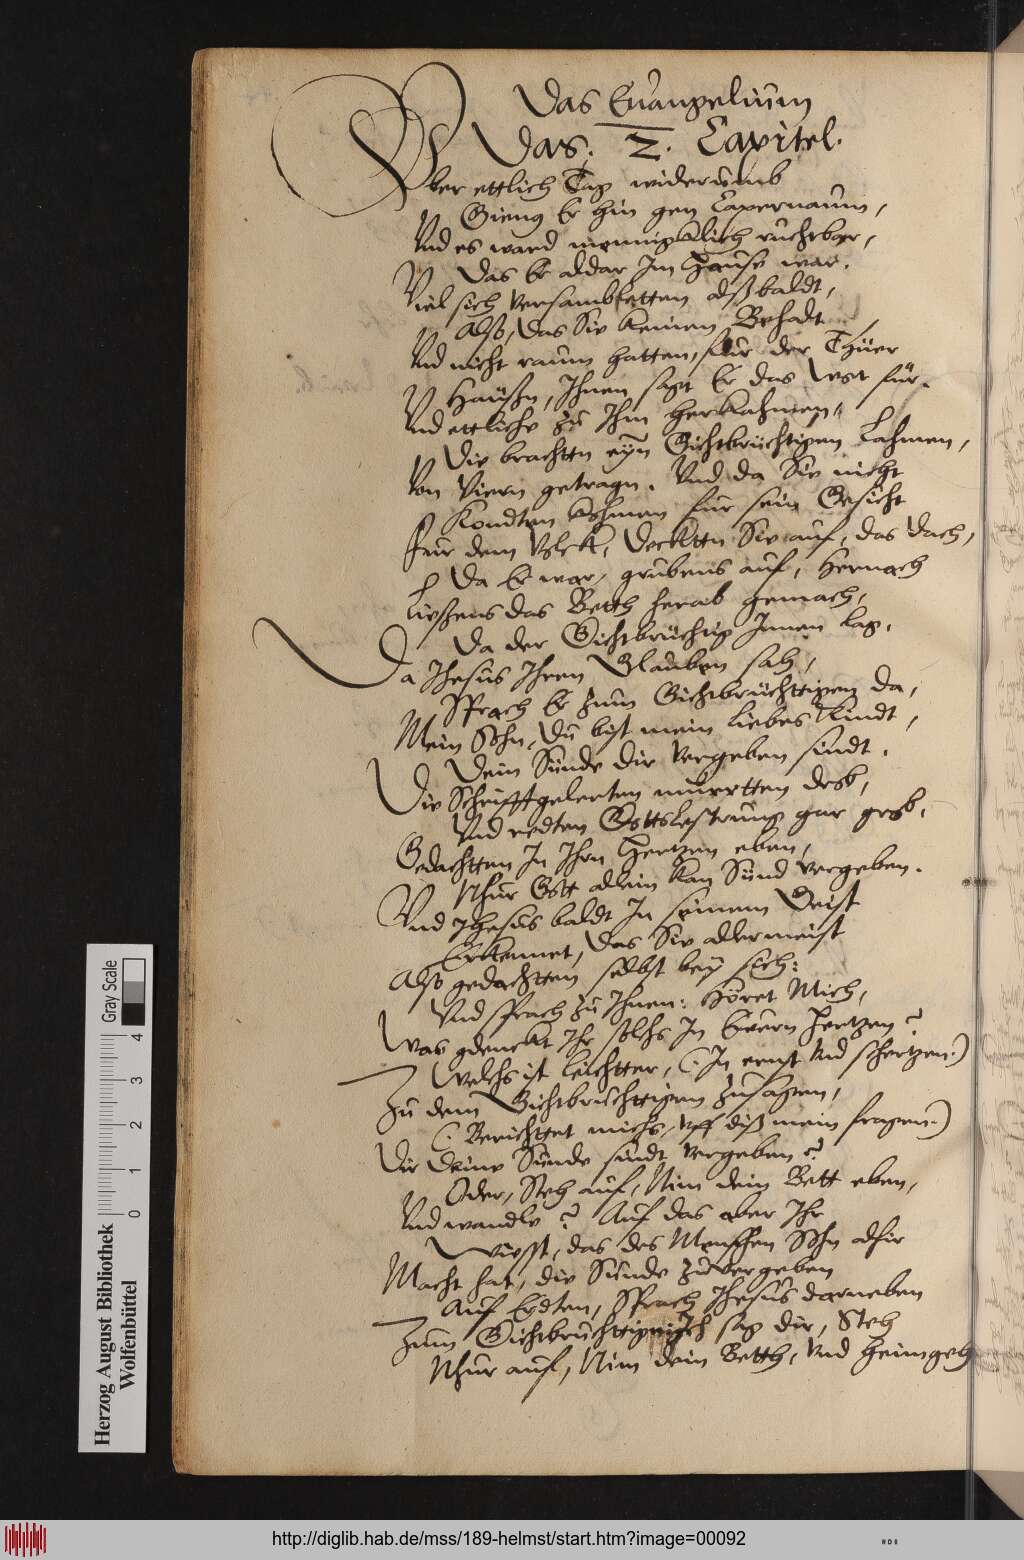 Das Euangelium
Das. 2. Capitel.
Vber ettlich Tag widerumb
Gieng Er hin gen Capernaum,
Vnd es ward mennigklich ruchtbar,
Das Er aldar Im Hause war.
Viel sich versambletten alßbaldt,
Also, das Sie keinen Behadt
Vnd nicht raum hatten, fur der Thüer
Haußn, Ihnen sagt Er das Wort für.
Vnd ettliche zu Ihm herkahmen,
Die brachttn eyn Gichtbrüchtigen Lahmen,
Von Viern getragn. Vnd da Sie nicht
Kondten kohmen fur sein Gesicht
Fur dem Volck, Decktten Sie auf, das Dach,
Da Er war, grubens auf, Hernach
Liessens das Betth herab gemach,
Da der Gichtbrüchtig Innen lag.
Da Jhesus Ihren Glauben sah,
Sprach Er zum Gichtbrüchttigen da,
Mein Sohn, Du bist mein liebes Kindt,
Dein Sunde dir vergeben sindt.
Die Schrifftgelerten murrtten drob,
Vnd redten Gottslestrung gar grob.
Gedachtten In Ihrn Hertzen eben,
Nhur Gott allein kan Sünd vergeben.
Vnd Jhesus baldt In seinem Geist
Erkennet, Das Sie allermeist
Also gedachtten selbst bey sich:
Vnd sprach zu Ihnen: Höret Mich,
Was gdenckt Ihr solchs In Euern Hertzen?
Welchs ist leichtter, (: In ernst vnd schertzen:)
Zu dem Gichtbrüchttigen zusagen,
(: Berichttet michs, vff diß mein fragen:)
Dir Deine Sunde sindt vergeben?
Oder, Steh auf, Nim dein Bett eben,
Vnd wandle? Auf das aber Ihr
Wisst, das des Menschen Sohn alhir
Macht hat, die Sunde zuvergeben
Auf Erdten, Sprach Jhesus darneben
Zum Gichtbruchttign, Ich sag dir, Steh
Nhur auf, Nim dein Betth, vnd heimgeh
Herzog August Bibliothek
Wolfenbüttel
Gray Scale
0 1 2 3 4
http://diglib.hab.de/mss/189-helmst/start.htm?image=00092